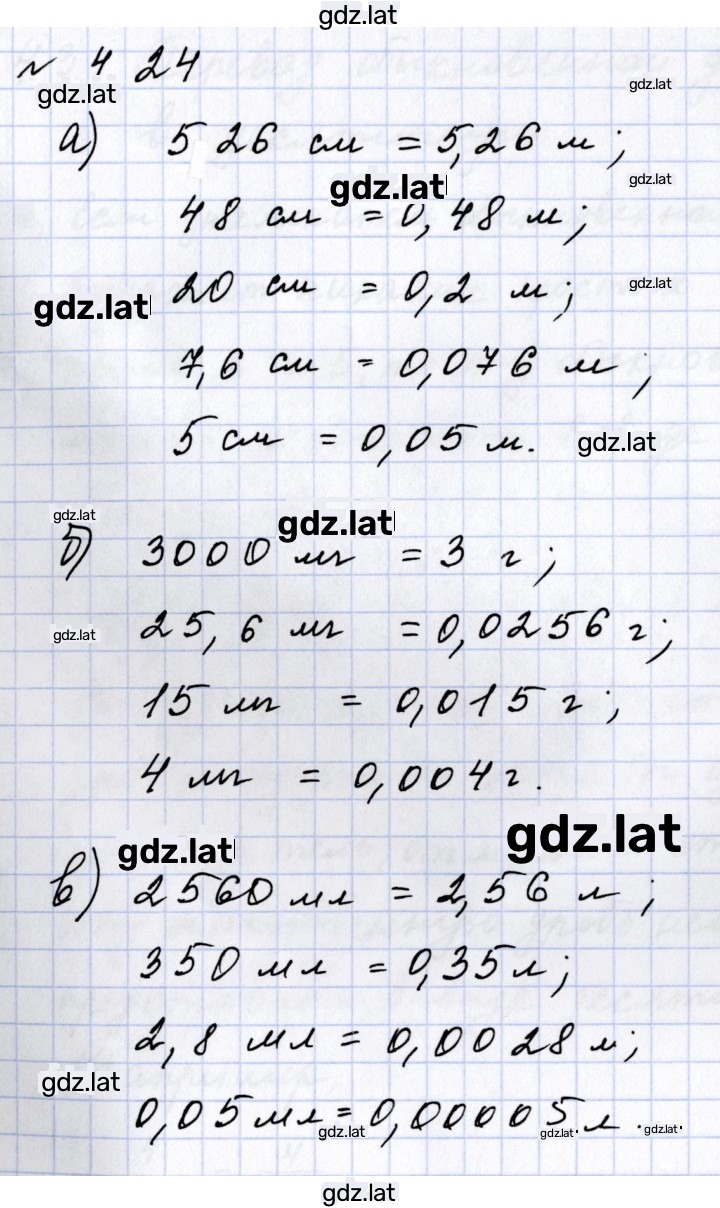 gdz.lat
№ 424
gdz.lat
gdz.lat
а) 526 см = 5,26 м;
gdz.lat
gdz.lat
48 см = 0,48 м;
20 см = 0,2 м;
gdz.lat
gdz.lat
7,6 см = 0,076 м;
5 см = 0,05 м.
gdz.lat
gdz.lat
gdz.lat
б) 3000 мг = 3 г;
25,6 мг = 0,0256 г;
gdz.lat
15 мг = 0,015 г;
4 мг = 0,004 г.
gdz.lat
gdz.lat
в) 2560 мл = 2,56 л;
350 мл = 0,35 л;
2,8 мл = 0,0028 л;
gdz.lat
0,05 мл = 0,00005 л.
gdz.lat
gdz.lat
gdz.lat
gdz.lat